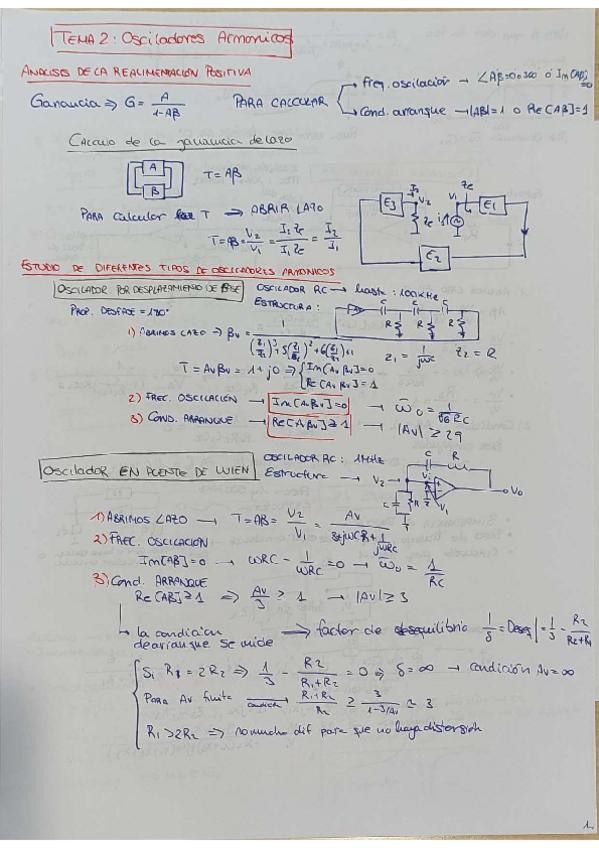 TEMA 2: Osciladores Armonicos
ANALISIS DE LA REALIMENTACIÓN POSITIVA
Ganancia ⇒ G = A / (1-Aβ)
PARA CALCULAR
→ Freq. oscilación → ∠Aβ=0 o 360 o Im[Aβ]=0
→ Cond. arranque → |Aβ|=1 o Re[Aβ]=1
Calculo de la ganancia de lazo
A
B
T = Aβ
PARA calcular T → ABRIR LAZO
T = Aβ = V2/V1 = I2 Ze / I1 Ze = I2/I1
E3 V2 Ze V1 Ze E1
E2
ESTUDIO DE DIFERENTES TIPOS DE OSCILADORES ARMONICOS
OSCILADOR POR DESPLAZAMIENTO DE FASE
OSCILADOR RC → hasta: 100KHz
PROP. DESFASE = 180°
ESTRUCTURA:
C C C
R R R
1) ABRIMOS LAZO ⇒ βv = 1 / ((Z1/Z2)³ + 5(Z1/Z2)² + 6(Z1/Z2) + 1)
Z1 = 1/jωC Z2 = R
T = Av βv = 1 + j0 ⇒ { Im[Av βv] = 0
Re[Av βv] = 1
2) FREC. OSCILACIÓN → Im[Av βv]=0 → ω0 = 1/√6 RC
3) COND. ARRANQUE → Re[Av βv] ≥ 1 → |Av| ≥ 29
Oscilador EN PUENTE DE WIEN
OSCILADOR RC: 1MHz
Estructura → V2 →
C R
C R V1 V0
1) ABRIMOS LAZO → T = AB = V2/V1 = Av / (3 + jωCR + 1/jωRC)
2) FREC. OSCILACION
Im[AB]=0 → ωRC - 1/ωRC = 0 → ω0 = 1/RC
3) Cond. ARRANQUE
Re[AB] ≥ 1 ⇒ Av/3 ≥ 1 → |Av| ≥ 3
→ la condicion de arranque se mide ⇒ factor de desequilibrio 1/δ = = 1/3 - R2/(R2+R1)
Si R1 = 2R2 ⇒ 1/3 - R2/(R1+R2) = 0 ⇒ δ = ∞ → condición Av = ∞
Para Av finita → (R1+R2)/R2 ≥ 3/(1-3/Av) ≈ 3
R1 > 2R2 ⇒ no mucho dif para que no haya distorsión
1.